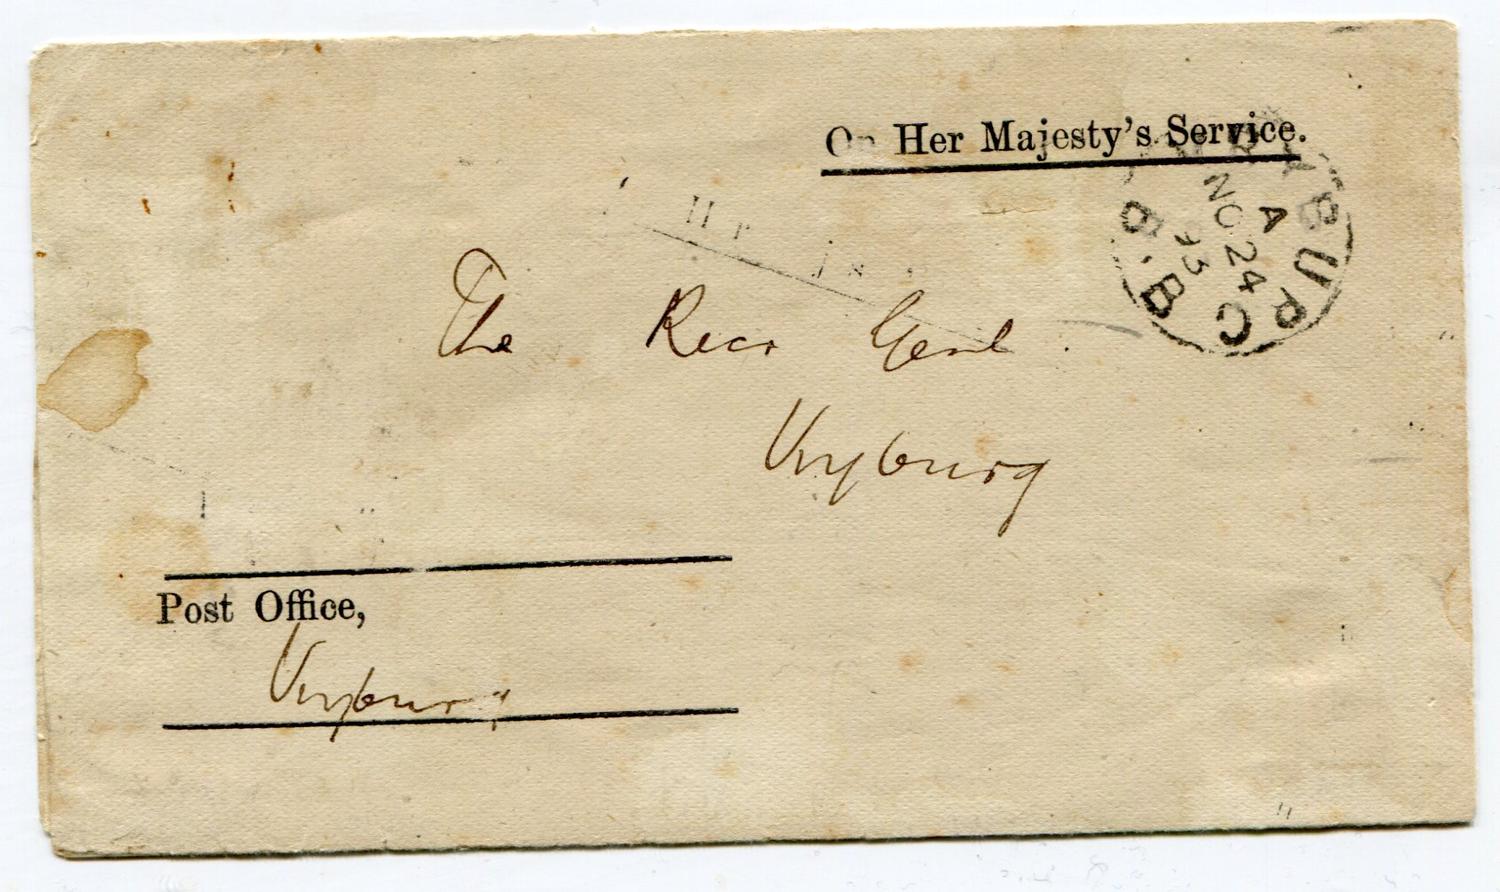 On Her Majesty's Service.
VRYBURG
A
NO 24
93
B.B
The Recr Genl.
Vryburg
Post Office,
Vryburg